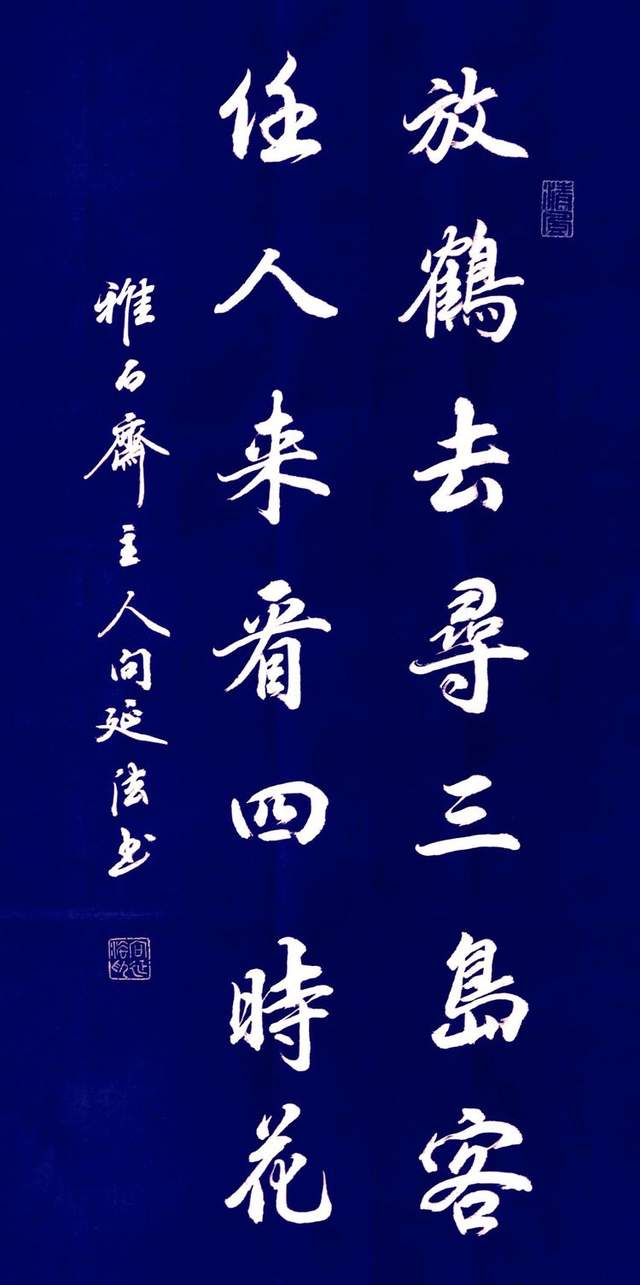 放鶴去尋三島客
任人来看四時花
雅石齋主人向延法书